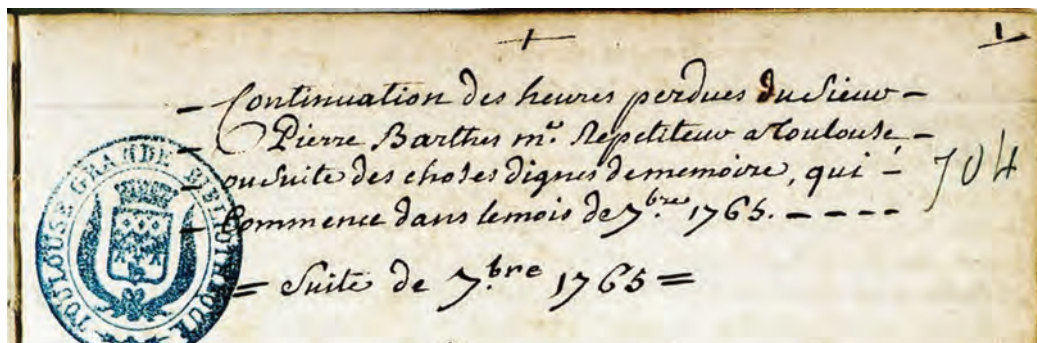 1
1
– Continuation des heures perdues du Sieur –
– Pierre Barthes m.e Repetiteur a Toulouse –
– ou Suite des choses dignes de memoire, qui –
– Commence dans le mois de 7.bre 1765. – – – –
704
= Suite de 7.bre 1765 =
TOULOUSE GRANDE BIBLIOTHEQUE